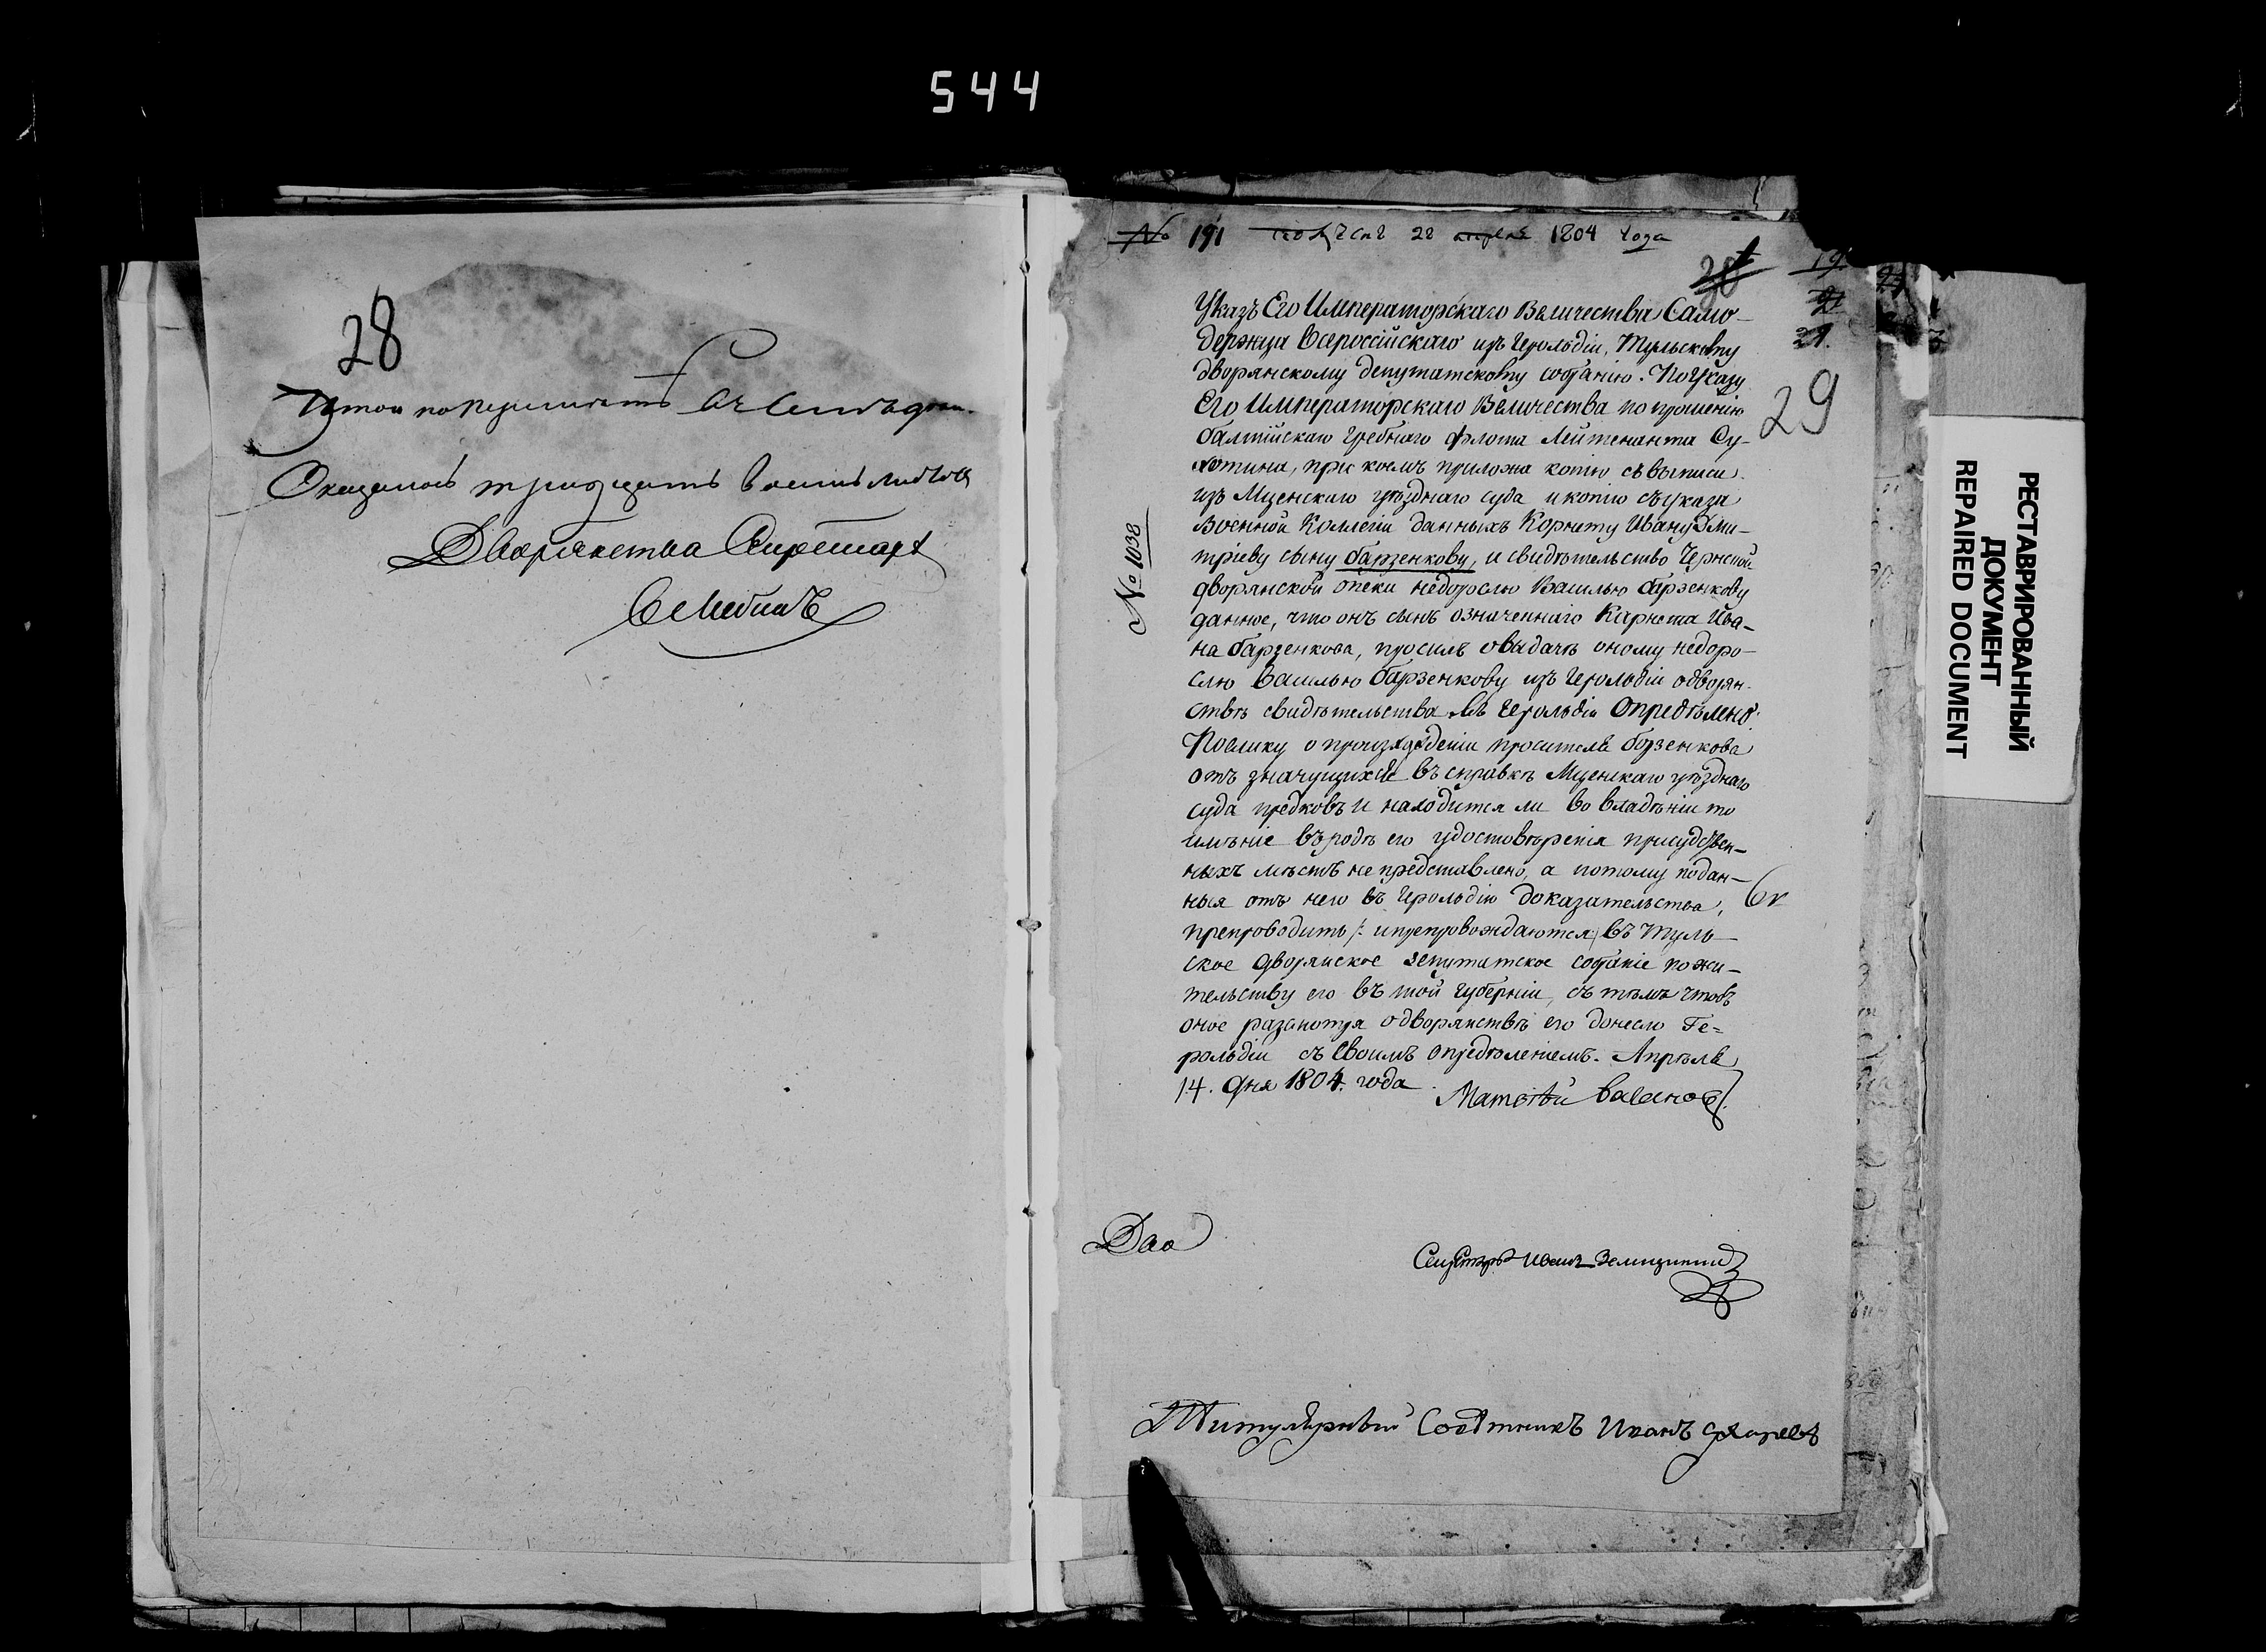 544
28
Оказалось тридцать восемь листовъ
Дворянства Секретарь
№ 191 получен 22 апреля 1804 года
19
21.
29
№ 1038
Указъ Его Императорскаго Величества Само-
держца Всероссійскаго изъ Герольдіи, Тульскому
дворянскому депутатскому собранію. По Указу
Его Императорскаго Величества по прошенію
балтійскаго гребнаго флота Лейтенанта Су-
хотина, при коемъ приложа копію съ выписи
изъ Мценскаго уѣзднаго суда и копію съ указа
Военной Коллегіи данныхъ Корнету Ивану Дми-
тріеву сыну барзенкову, и свидѣтельство Чернской
дворянской опеки недорослю Василью барзенкову
данное, что онъ сынъ означеннаго Карнета Ива-
на барзенкова, просилъ о выдачѣ оному недоро-
слю Василью барзенкову изъ Герольдіи о дворян-
ствѣ свидѣтельства. Въ Герольдіи Опредѣлено:
Поелику о произхожденіи просителя борзенкова
отъ значущихся въ справкѣ Мценскаго уѣзднаго
суда предковъ и находится ли во владѣніи то
имѣніе въ родѣ его удостовѣренія присудствен-
ныхъ мѣстъ не представлено, а потому подан-
ныя отъ него въ Герольдію доказательства,
препроводить /: и препровождаются) въ Туль-
ское дворянское депутатское собраніе по жи-
тельству его въ той губерніи, съ тѣмъ чтобъ
оное разсмотря о дворянствѣ его донесло Ге-
рольдіи съ своимъ опредѣленіемъ. Апрѣля
14. дня 1804. года
Матвѣй
Секретарь Иванъ
Титулярный Совѣтникъ Иванъ
РЕСТАВРИРОВАННЫЙ
ДОКУМЕНТ
REPAIRED DOCUMENT